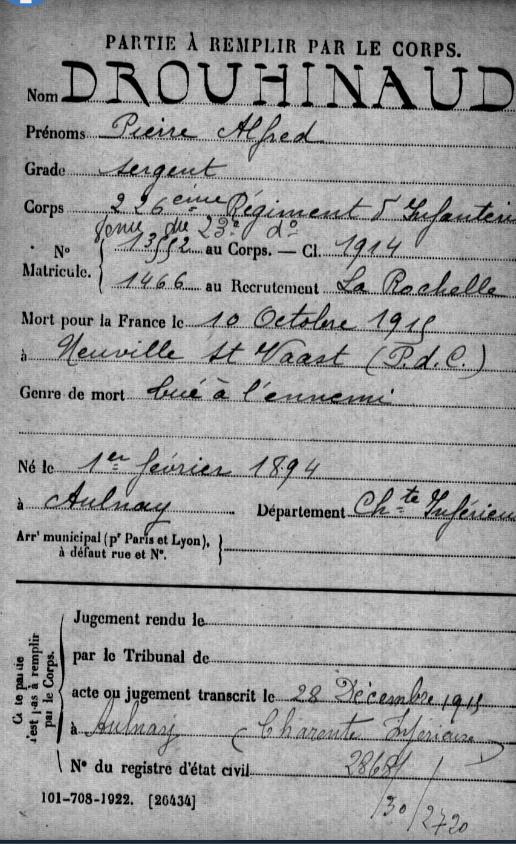 PARTIE À REMPLIR PAR LE CORPS.
Nom DROUHINAUD
Prénoms Pierre Alfred
Grade sergent
Corps 226ème Régiment d'Infanterie
venu du 23e do
No 13552 au Corps. — Cl. 1914
Matricule. 1466 au Recrutement La Rochelle
Mort pour la France le 10 Octobre 1915
à Neuville St Vaast (P.d.C.)
Genre de mort tué à l'ennemi
Né le 1er février 1894
à Aulnay Département Chte Inférieu
Arrt municipal (pr Paris et Lyon),
à défaut rue et No.
Jugement rendu le
par le Tribunal de
acte ou jugement transcrit le 28 Décembre 1915
à Aulnay (Charente Inférieure)
No du registre d'état civil
Cette partie
n'est pas à remplir
par le Corps.
101-708-1922. [26434]
30/2720